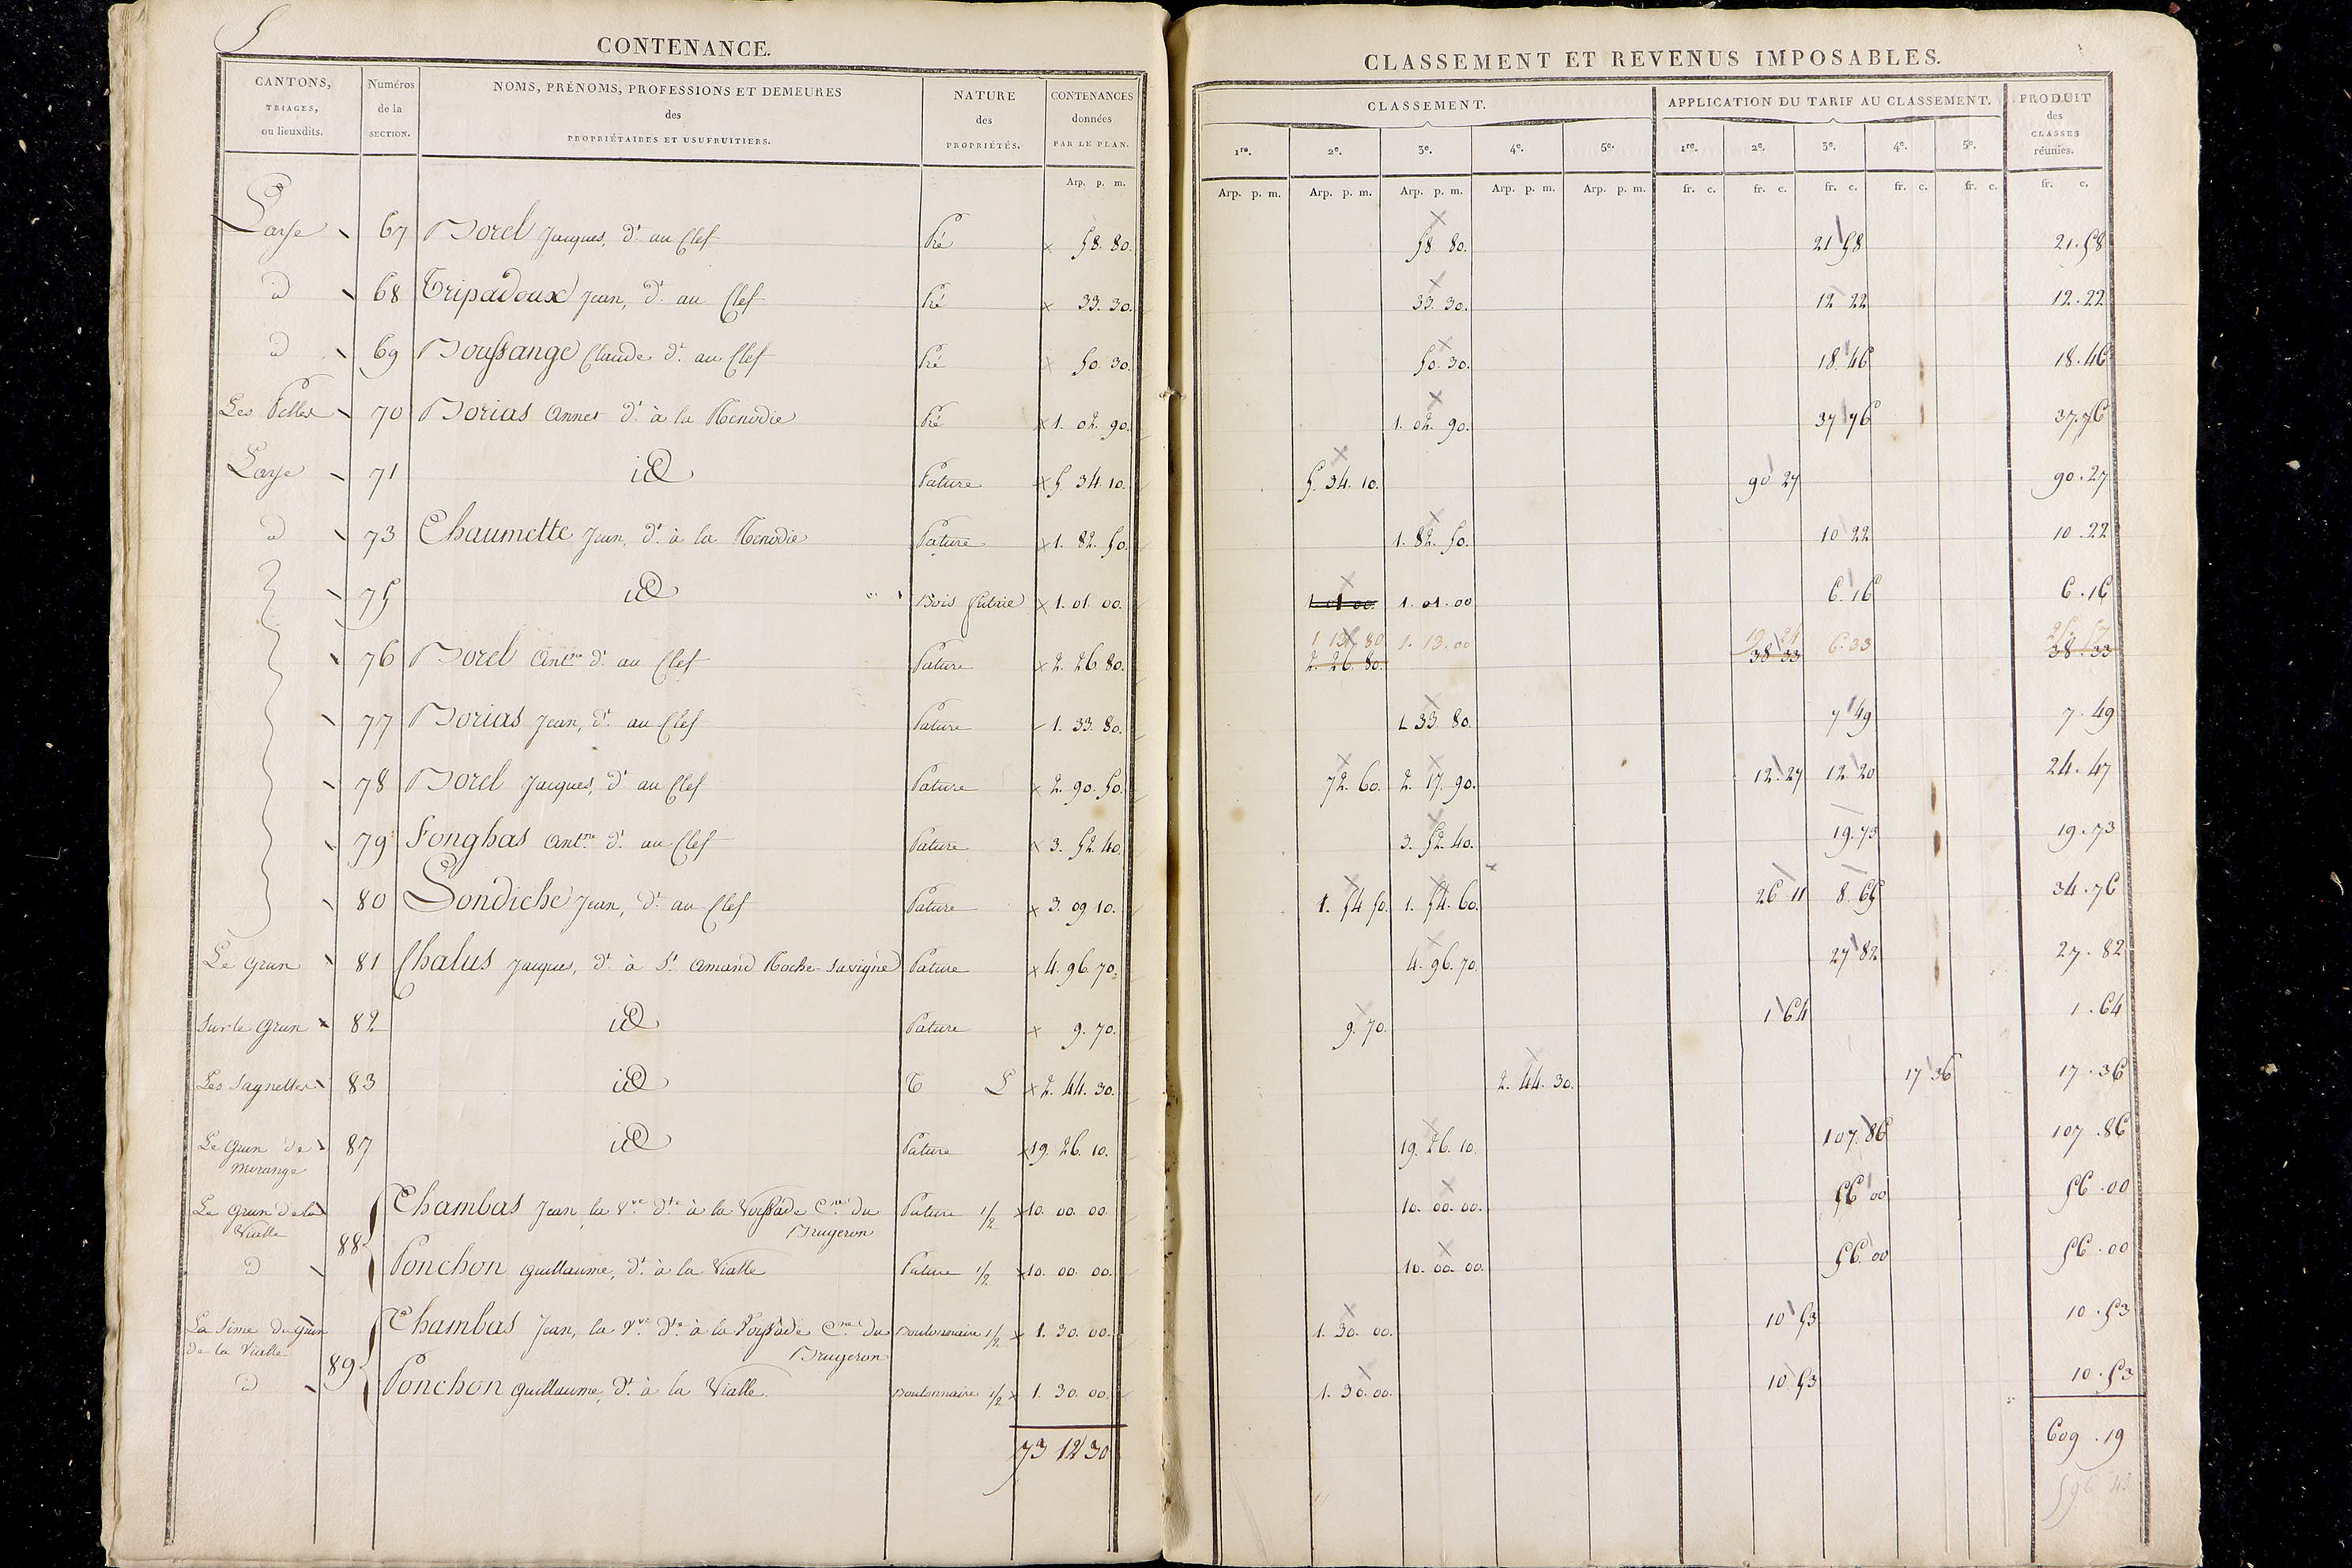 5
CONTENANCE.
CANTONS, TRIAGES, ou lieuxdits. Numéros de la SECTION. NOMS, PRÉNOMS, PROFESSIONS ET DEMEURES des PROPRIÉTAIRES ET USUFRUITIERS. NATURE des PROPRIÉTÉS. CONTENANCES données PAR LE PLAN.
Arp. p. m.
CLASSEMENT ET REVENUS IMPOSABLES.
CLASSEMENT. APPLICATION DU TARIF AU CLASSEMENT. PRODUIT des CLASSES réunies.
1re. 2e. 3e. 4e. 5e. 1re. 2e. 3e. 4e. 5e.
Arp. p. m. Arp. p. m. Arp. p. m. Arp. p. m. Arp. p. m. fr. c. fr. c. fr. c. fr. c. fr. c. fr. c.
67 Borel Jacques, dt. au Clef Pré x 58. 80. 58 80. 21 58 21.58
id 68 Tripadoux Jean, dt. au Clef Pré x 33. 30. 33. 30. 12 22 12.22
id 69 Boussange Claude dt. au Clef Pré x 50. 30. 50. 30. 18 46 18.46
Les 70 Dorias Annet dt. à la Renodie Pré x 1. 02. 90. 1. 02. 90. 37 76 37.76
71 id Pature x 5 34. 10. 5. 34. 10. 90 27 90.27
id 73 Chaumette Jean, dt. à la Renodie Pature x 1. 82. 50. 1. 82. 50. 10 22 10.22
75 id Bois futaie x 1. 01. 00. 1. 01. 00 1. 01. 00 6. 16 6.16
1 13 80 1. 13. 00 19 24 6.33 25. 57
76 Borel Antne dt. au Clef Pature x 2. 26 80. 2. 26. 80. 38 33 38.33
77 Dorias Jean, dt. au Clef Pature 1. 33. 80. 1. 33. 80. 7 49 7.49
78 Borel Jacques, dt. au Clef Pature x 2. 90. 50. 72. 60. 2. 17. 90. 12. 27 12. 20 24.47
79 Fonghas Antne dt. au Clef Pature x 3. 52. 40. 3. 52. 40. 19.73 19.73
80 Londiche Jean, dt. au Clef Pature x 3. 09 10. 1. 54 50. 1. 54. 60. 26 11 8. 65 34.76
Le Grun 81 Chalus Jacques, dt. à St. Amand Roche-Savigne Pature x 4. 96. 70. 4. 96. 70. 27 82 27.82
Sur le Grun 82 id Pature x 9. 70. 9. 70. 1 64 1.64
Les Sagnettes 83 id T L x 2. 44. 30. 2. 44. 30. 17 36 17.36
Le Grun de Morange 87 id Pature x 19. 26. 10. 19. 26. 10. 107. 86 107.86
Le Grun de la Vialle 88 Chambas Jean la Vve. dte. à la Voissade Cne. du Brugeron Pature 1/2 x 10. 00. 00. 10. 00. 00. 56 00 56.00
id Ponchon Guillaume, dt. à la Vialle Pature 1/2 x 10. 00. 00. 10. 00. 00. 56. 00 56.00
La Sime du Grun de la Vialle 89 Chambas Jean, la Vve. dte. à la Voissade Cne. du Brugeron 1/2 x 1. 30. 00. 1. 30. 00. 10 53 10.53
id Ponchon Guillaume, dt. à la Vialle. 1/2 x 1. 30. 00. 1. 30. 00. 10 53 10.53
73 12 30 609.19
596 43